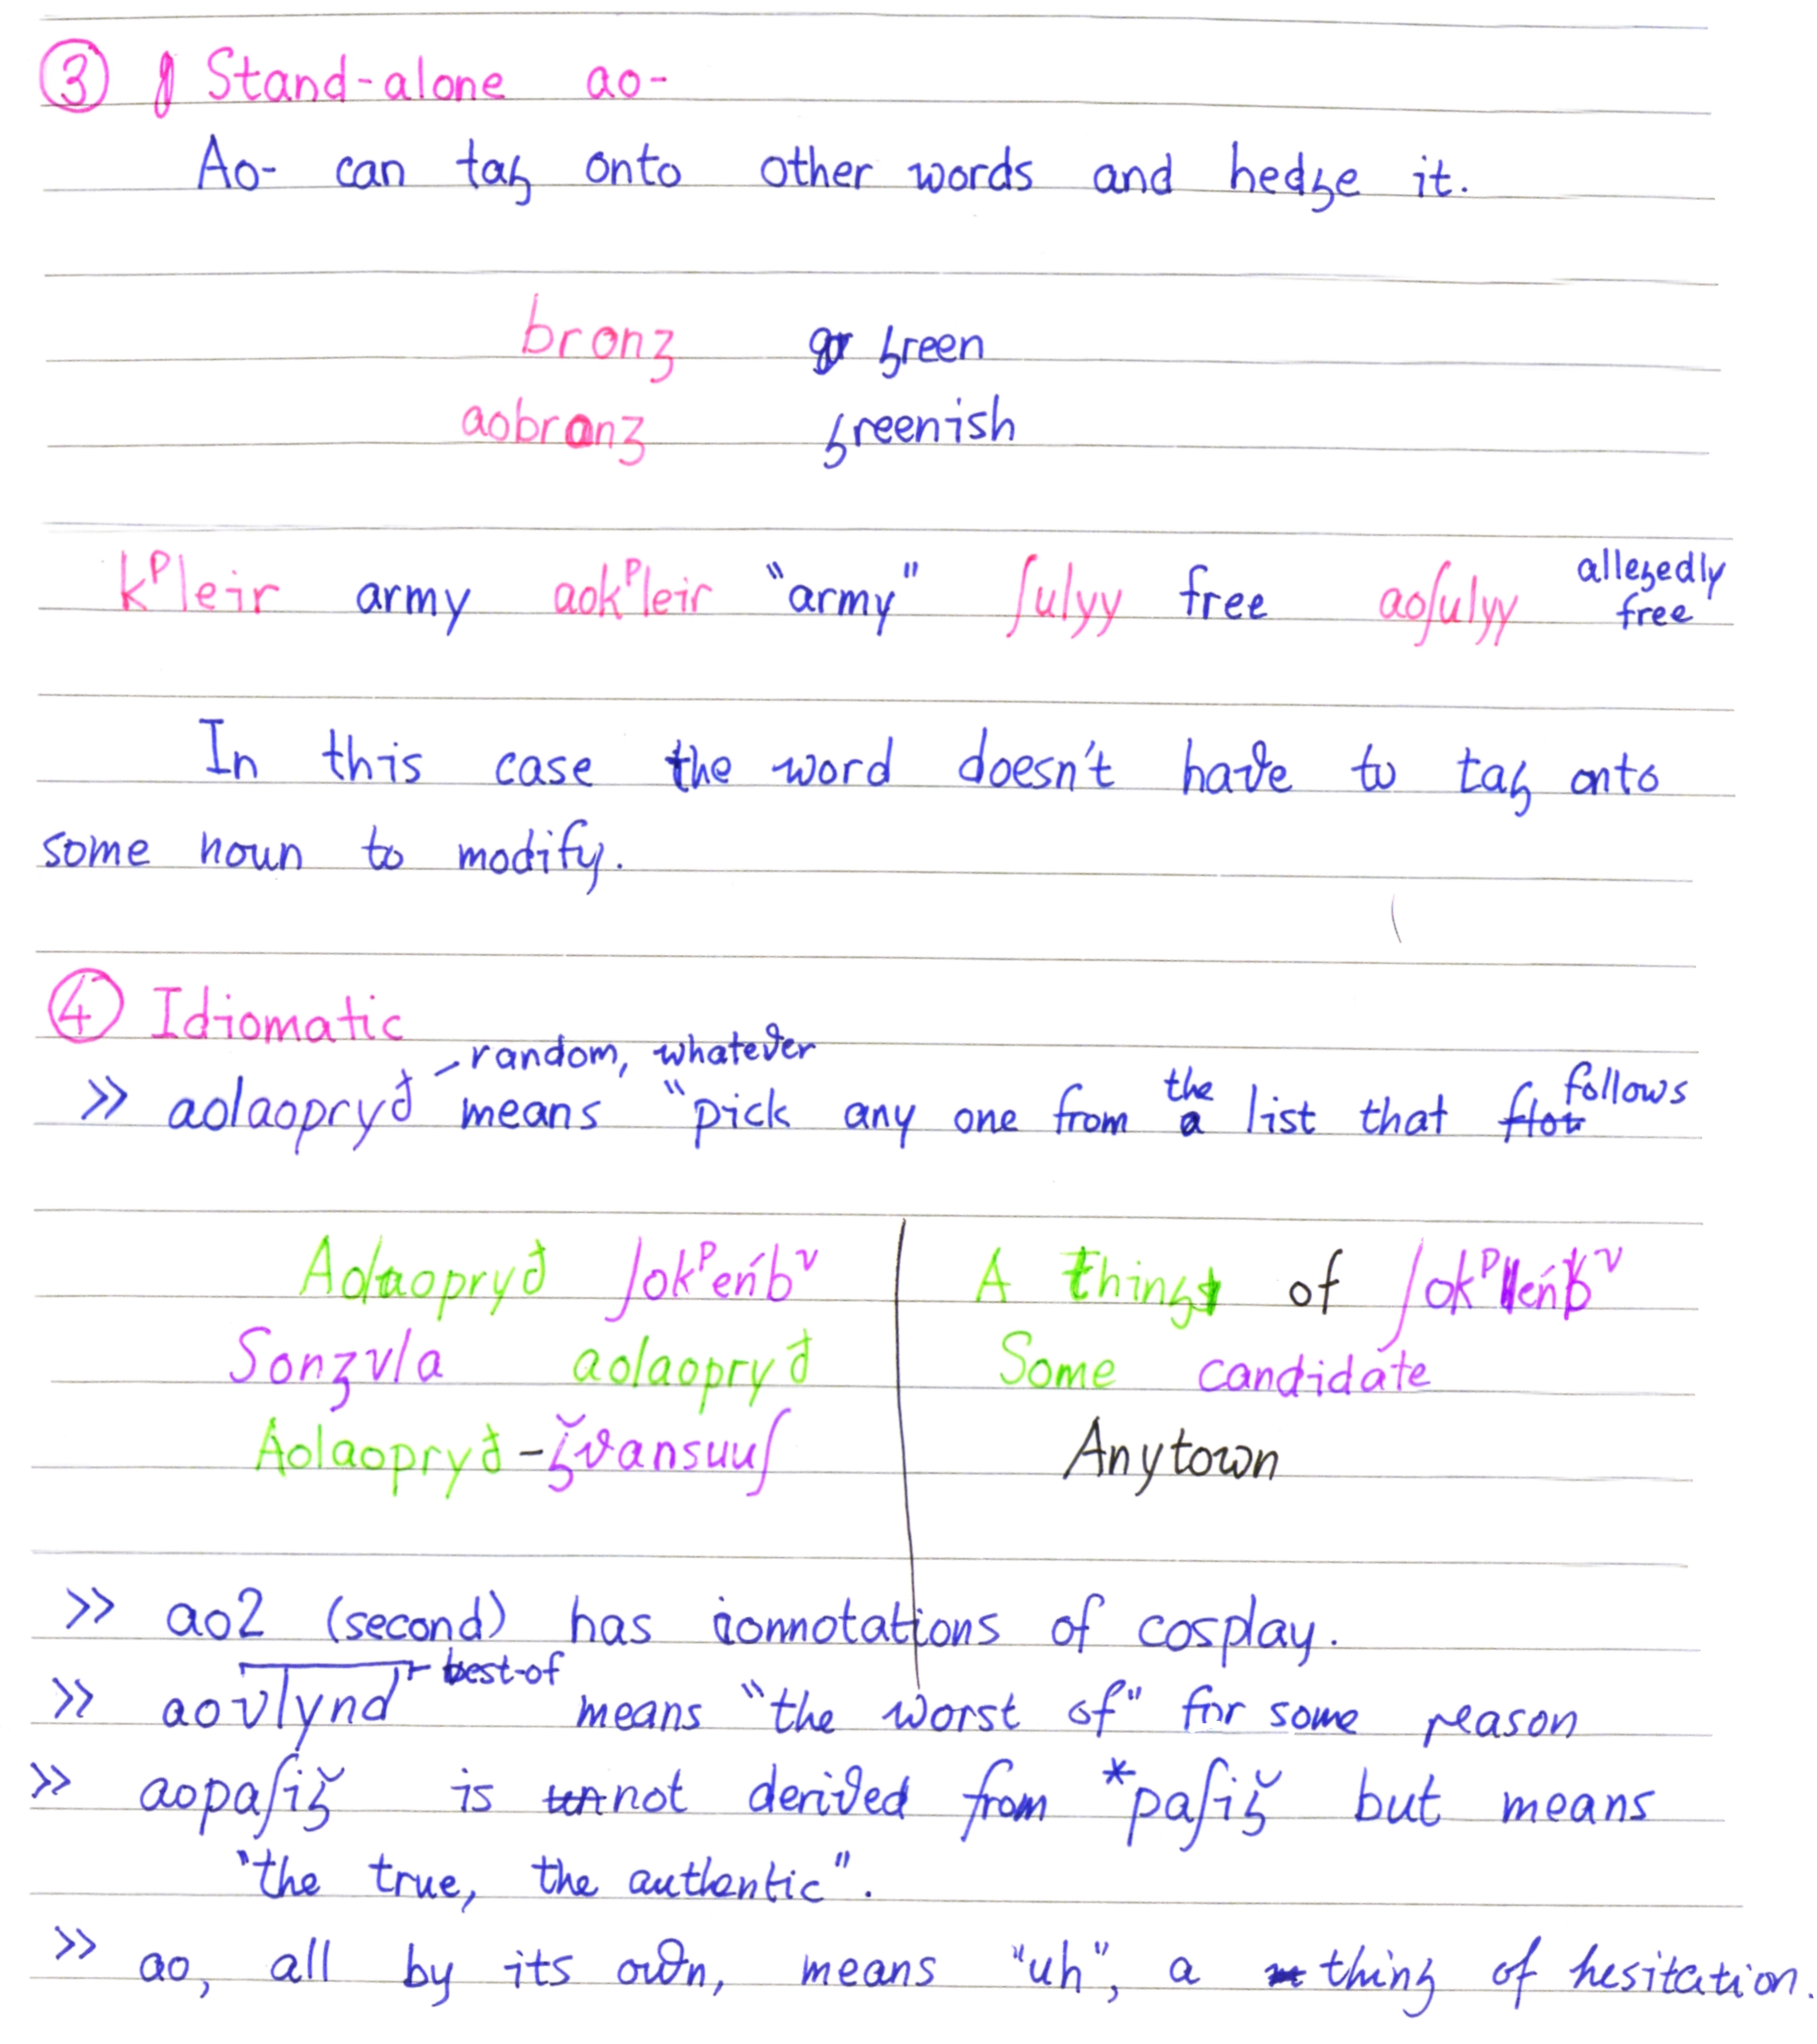 ③ Stand-alone ao-
Ao- can tag onto other words and hedge it.
bronʒ green
aobronʒ greenish
kᵖleir army aokᵖleir "army" ʃulyy free aoʃulyy allegedly free
In this case the word doesn't have to tag onto
some noun to modify.
④ Idiomatic
random, whatever
>> aolaopryđ means "pick any one from the list that follows
Aolaopryđ ʃokᵖeńbᵛ A thing of ʃokᵖeńbᵛ
Sonʒvla aolaopryđ Some candidate
Aolaopryđ-ǧvansuuʃ Anytown
>> ao2 (second) has connotations of cosplay.
best-of
>> aovlynd means "the worst of" for some reason
>> aopaʃiǧ is not derived from *paʃiǧ but means
"the true, the authentic".
>> ao, all by its own, means "uh", a thing of hesitation.